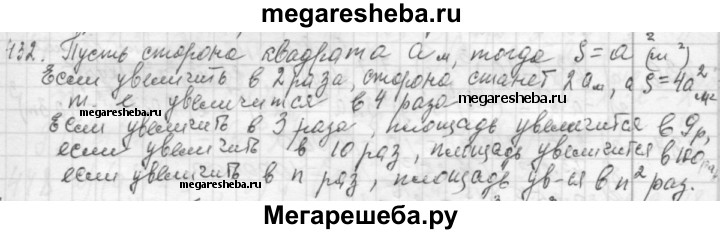 megaresheba.ru
432. Пусть сторона квадрата а м, тогда S = a² (м²)
Если увеличить в 2 раза, сторона станет 2а м, а S = 4a² м²
т. е увеличится в 4 раза
megaresheba.ru
Если увеличить в 3 раза, площадь увеличится в 9 р,
если увеличить в 10 раз, площадь увеличится в 100 раз,
если увеличить в n раз, площадь ув-ся в n² раз.
megaresheba.ru
megaresheba.ru
Мегарешеба.ру